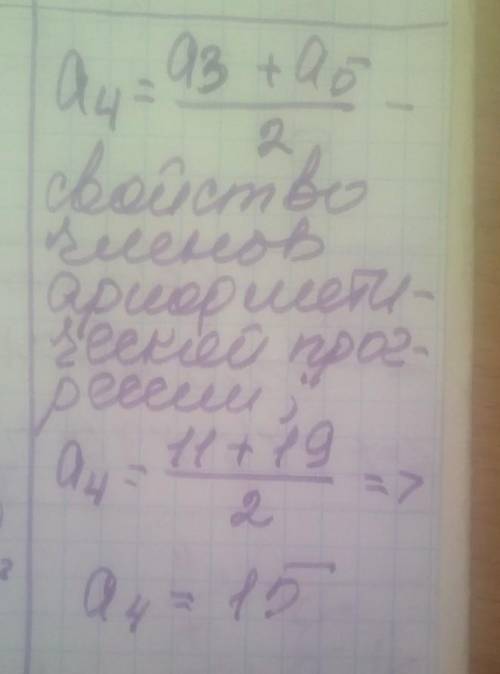 a₄ = (a₃ + a₅)/2 –
свойство
членов
арифмети-
ческой прог-
рессии;
a₄ = (11 + 19)/2 =>
a₄ = 15